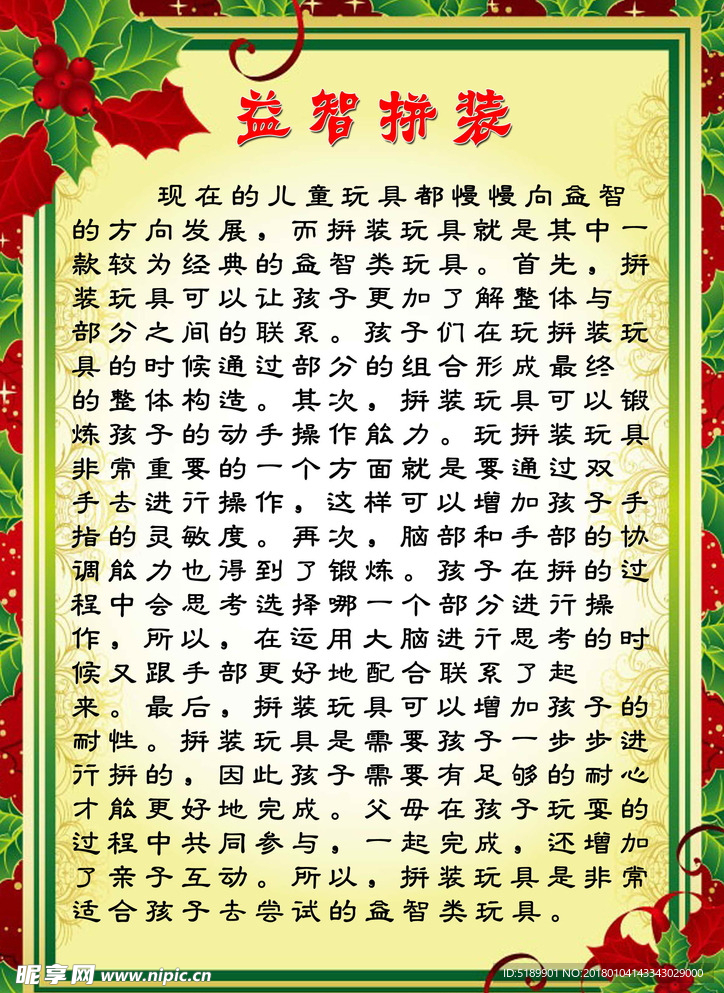 益智拼装
现在的儿童玩具都慢慢向益智
的方向发展，而拼装玩具就是其中一
款较为经典的益智类玩具。首先，拼
装玩具可以让孩子更加了解整体与
部分之间的联系。孩子们在玩拼装玩
具的时候通过部分的组合形成最终
的整体构造。其次，拼装玩具可以锻
炼孩子的动手操作能力。玩拼装玩具
非常重要的一个方面就是要通过双
手去进行操作，这样可以增加孩子手
指的灵敏度。再次，脑部和手部的协
调能力也得到了锻炼。孩子在拼的过
程中会思考选择哪一个部分进行操
作，所以，在运用大脑进行思考的时
候又跟手部更好地配合联系了起
来。最后，拼装玩具可以增加孩子的
耐性。拼装玩具是需要孩子一步步进
行拼的，因此孩子需要有足够的耐心
才能更好地完成。父母在孩子玩耍的
过程中共同参与，一起完成，还增加
了亲子互动。所以，拼装玩具是非常
适合孩子去尝试的益智类玩具。
昵享网 www.nipic.cn
ID:5189901 NO:20180104143343029000